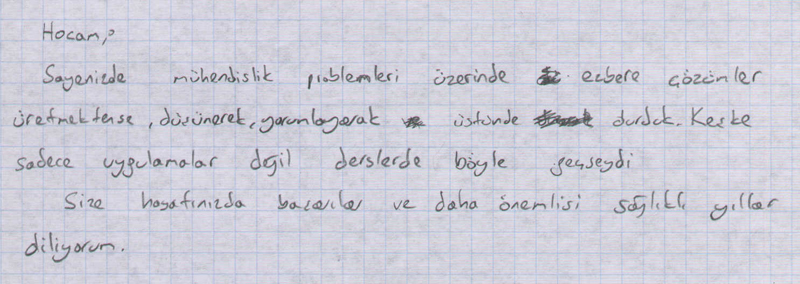 Hocam,
Sayenizde mühendislik problemleri üzerinde ezbere çözümler
üretmektense, düşünerek, yorumlayarak üstünde durduk. Keşke
sadece uygulamalar değil derslerde böyle geçseydi
Size hayatınızda başarılar ve daha önemlisi sağlıklı yıllar
diliyorum.